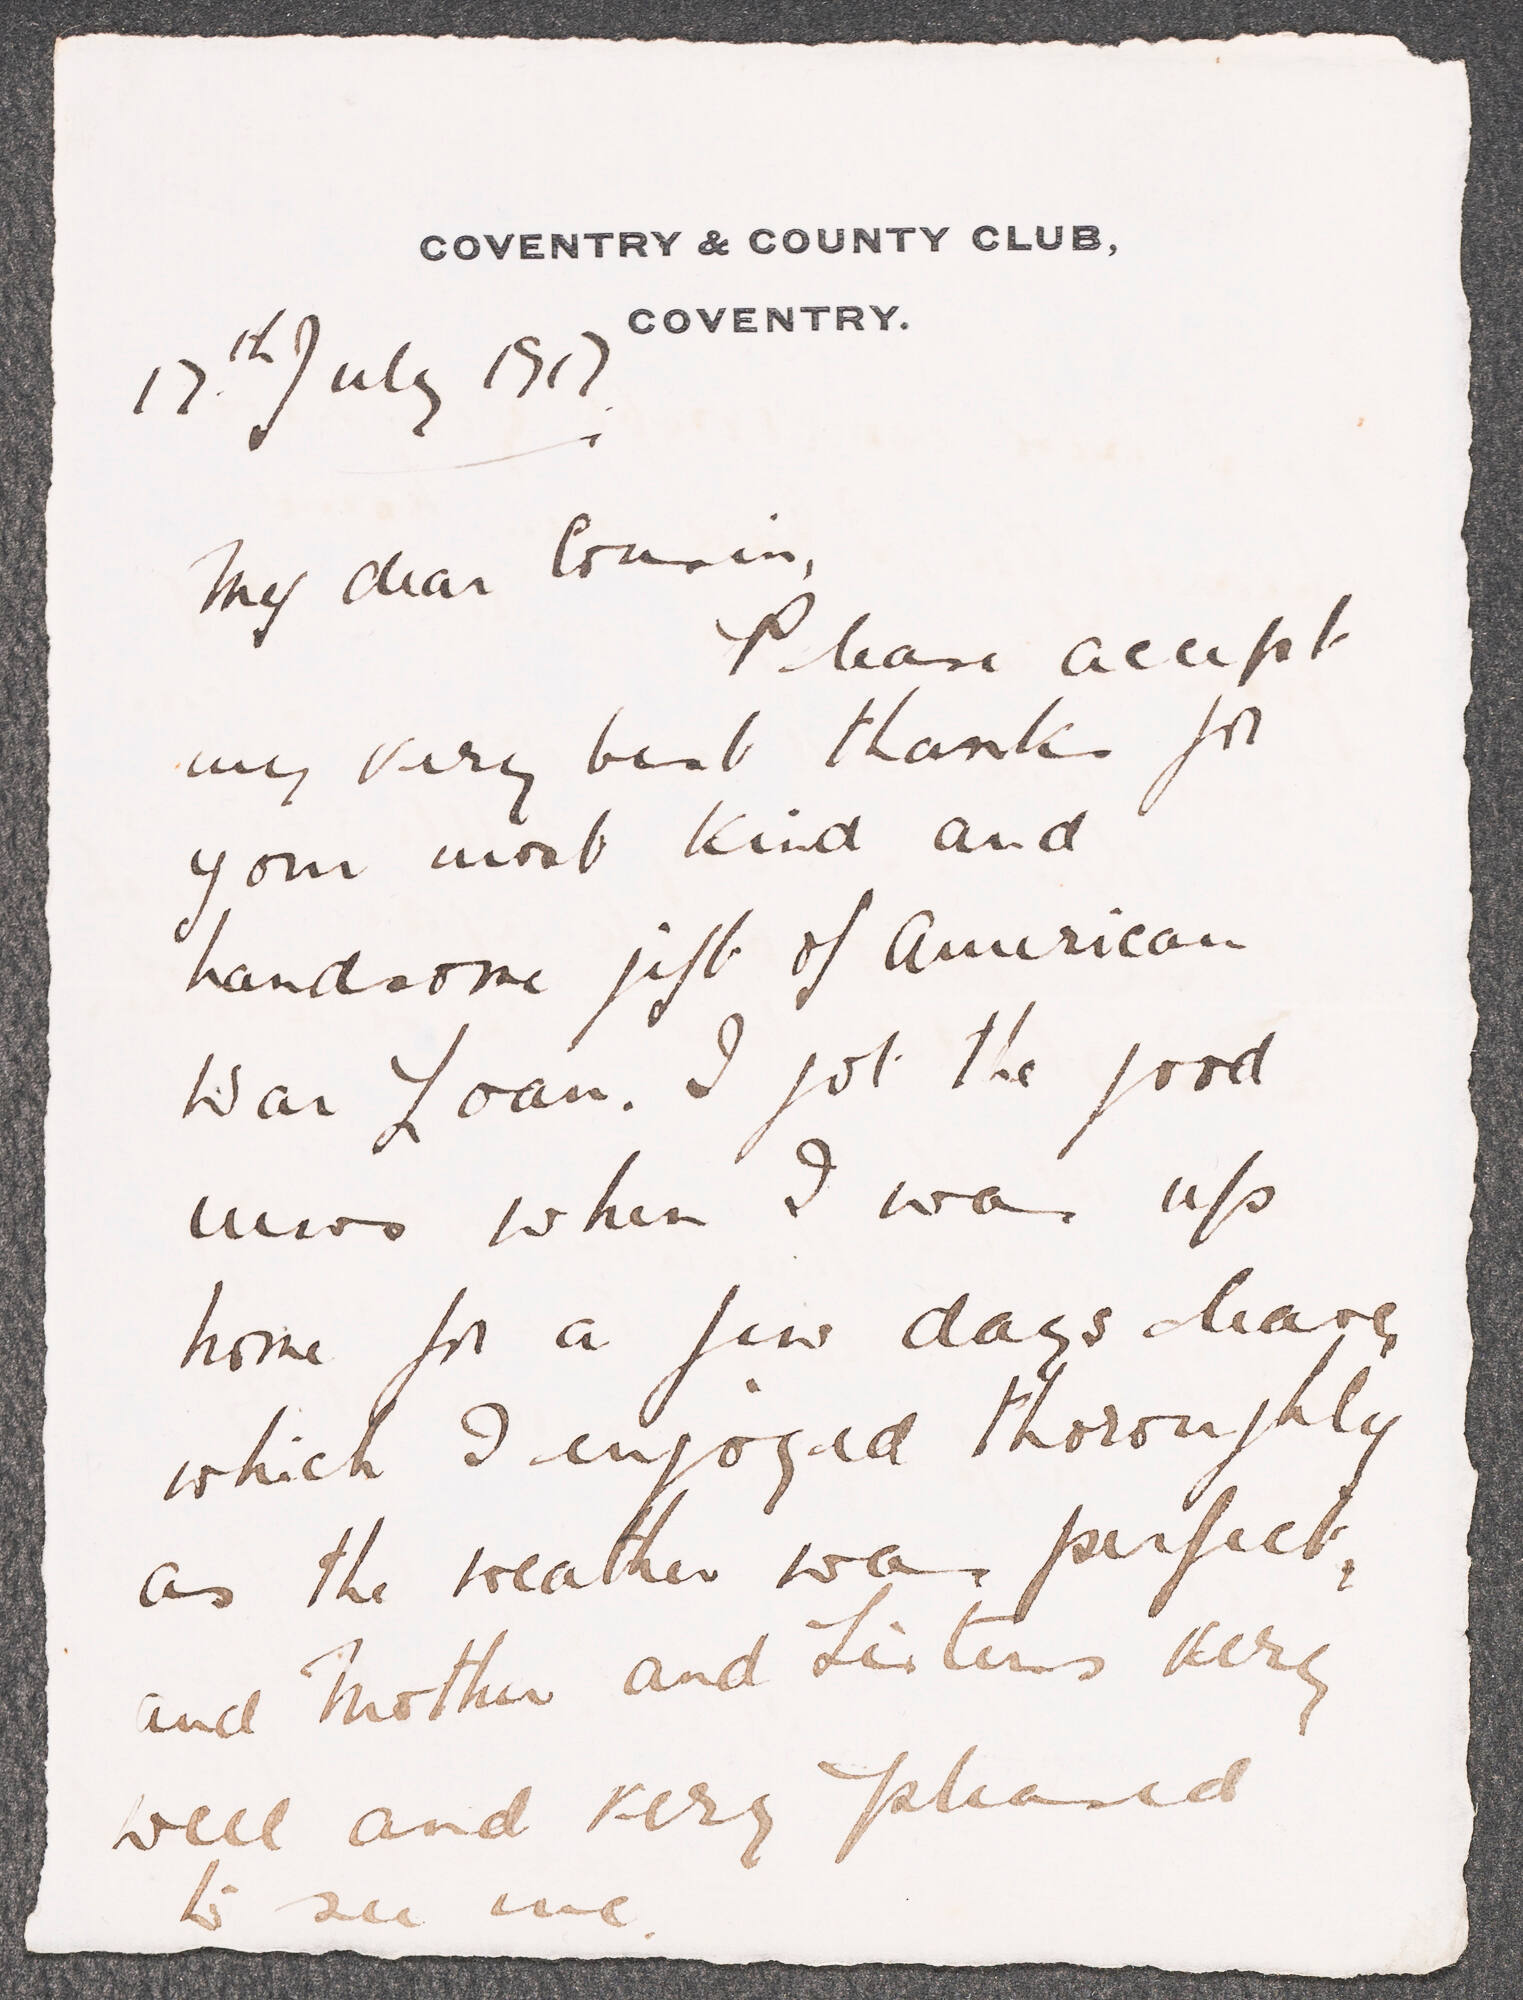 COVENTRY & COUNTY CLUB,
COVENTRY.
17th July 1917.
My dear Cousin,
Please accept
my very best thanks for
your most kind and
handsome gift of American
War Loan. I got the good
news when I was up
home for a few days leave,
which I enjoyed thoroughly
as the weather was perfect,
and Mother and Sisters very
well and very pleased
to see me.